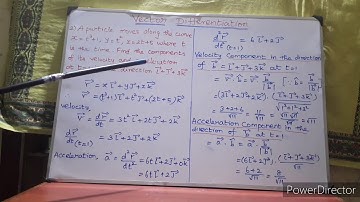 Vector Differentiation
2) A particle moves along the curve
x = t³+1, y = t², z = 2t+5 where t
is the time. Find the components
of its velocity and acceleration
at t = 1 direction i⃗+j⃗+3k⃗
r⃗ = x i⃗ + y j⃗ + z k⃗
r⃗ = (t³+1) i⃗ + t² j⃗ + (2t+5) k⃗
Velocity
dr⃗/dt = 3t² i⃗ + 2t j⃗ + 2 k⃗
dr⃗/dt (t=1) = 3 i⃗ + 2 j⃗ + 2 k⃗
Acceleration a⃗ = d²r⃗/dt² = 6t i⃗ + 2 j⃗ + 0k⃗
= 6t i⃗ + 2 j⃗
d²r⃗/dt² (t=1) = 6 i⃗ + 2 j⃗
Velocity Component in the direction
of b⃗ = i⃗ + j⃗ + 3k⃗ at t = 1
= (3 i⃗ + 2 j⃗ + 2 k⃗) . (i⃗ + j⃗ + 3k⃗)
= 3+2+6/√11 = 11/√11
Acceleration Component in the
direction of b⃗ at t = 1
= (6 i⃗ + 2 j⃗) . (i⃗ + j⃗ + 3k⃗)/√11
= 6+2/√11 = 8/√11
PowerDirector